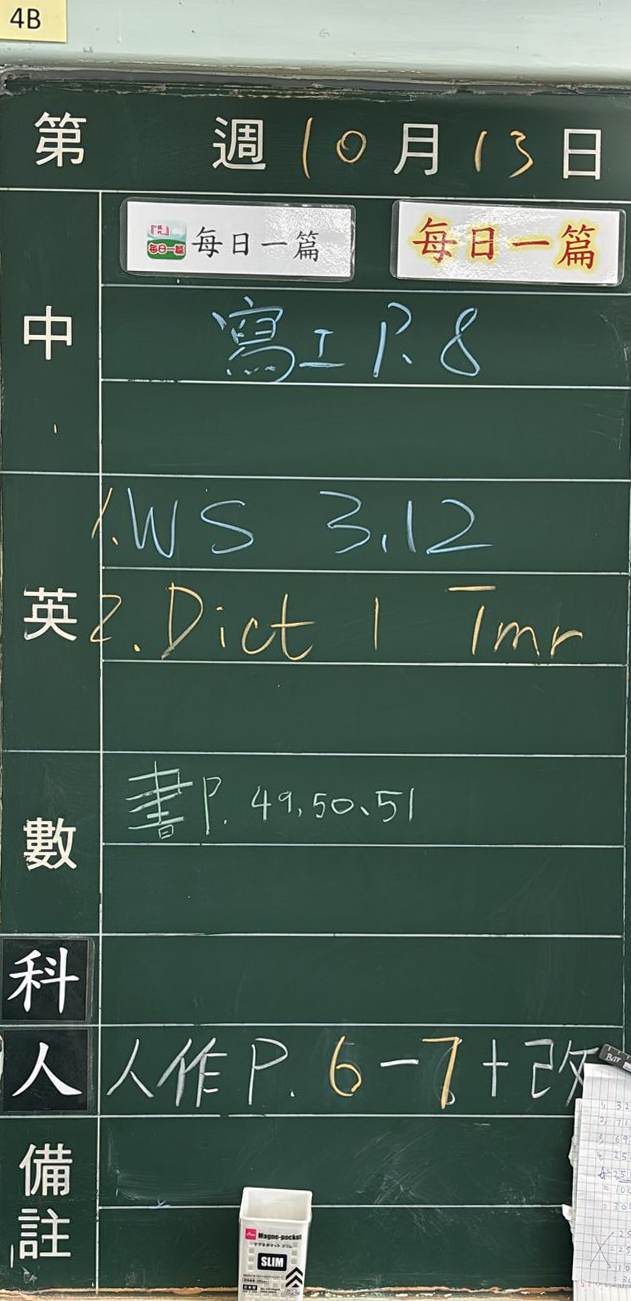 4B
第 週 10 月 13 日
中
每日一篇 每日一篇 每日一篇
寫工 P. 8
英
1. WS 3.12
2. Dict 1 Tmr
數
書 P. 49、50、51
科
人 人作 P. 6-7+改
備註
Magne-pocket
SLIM